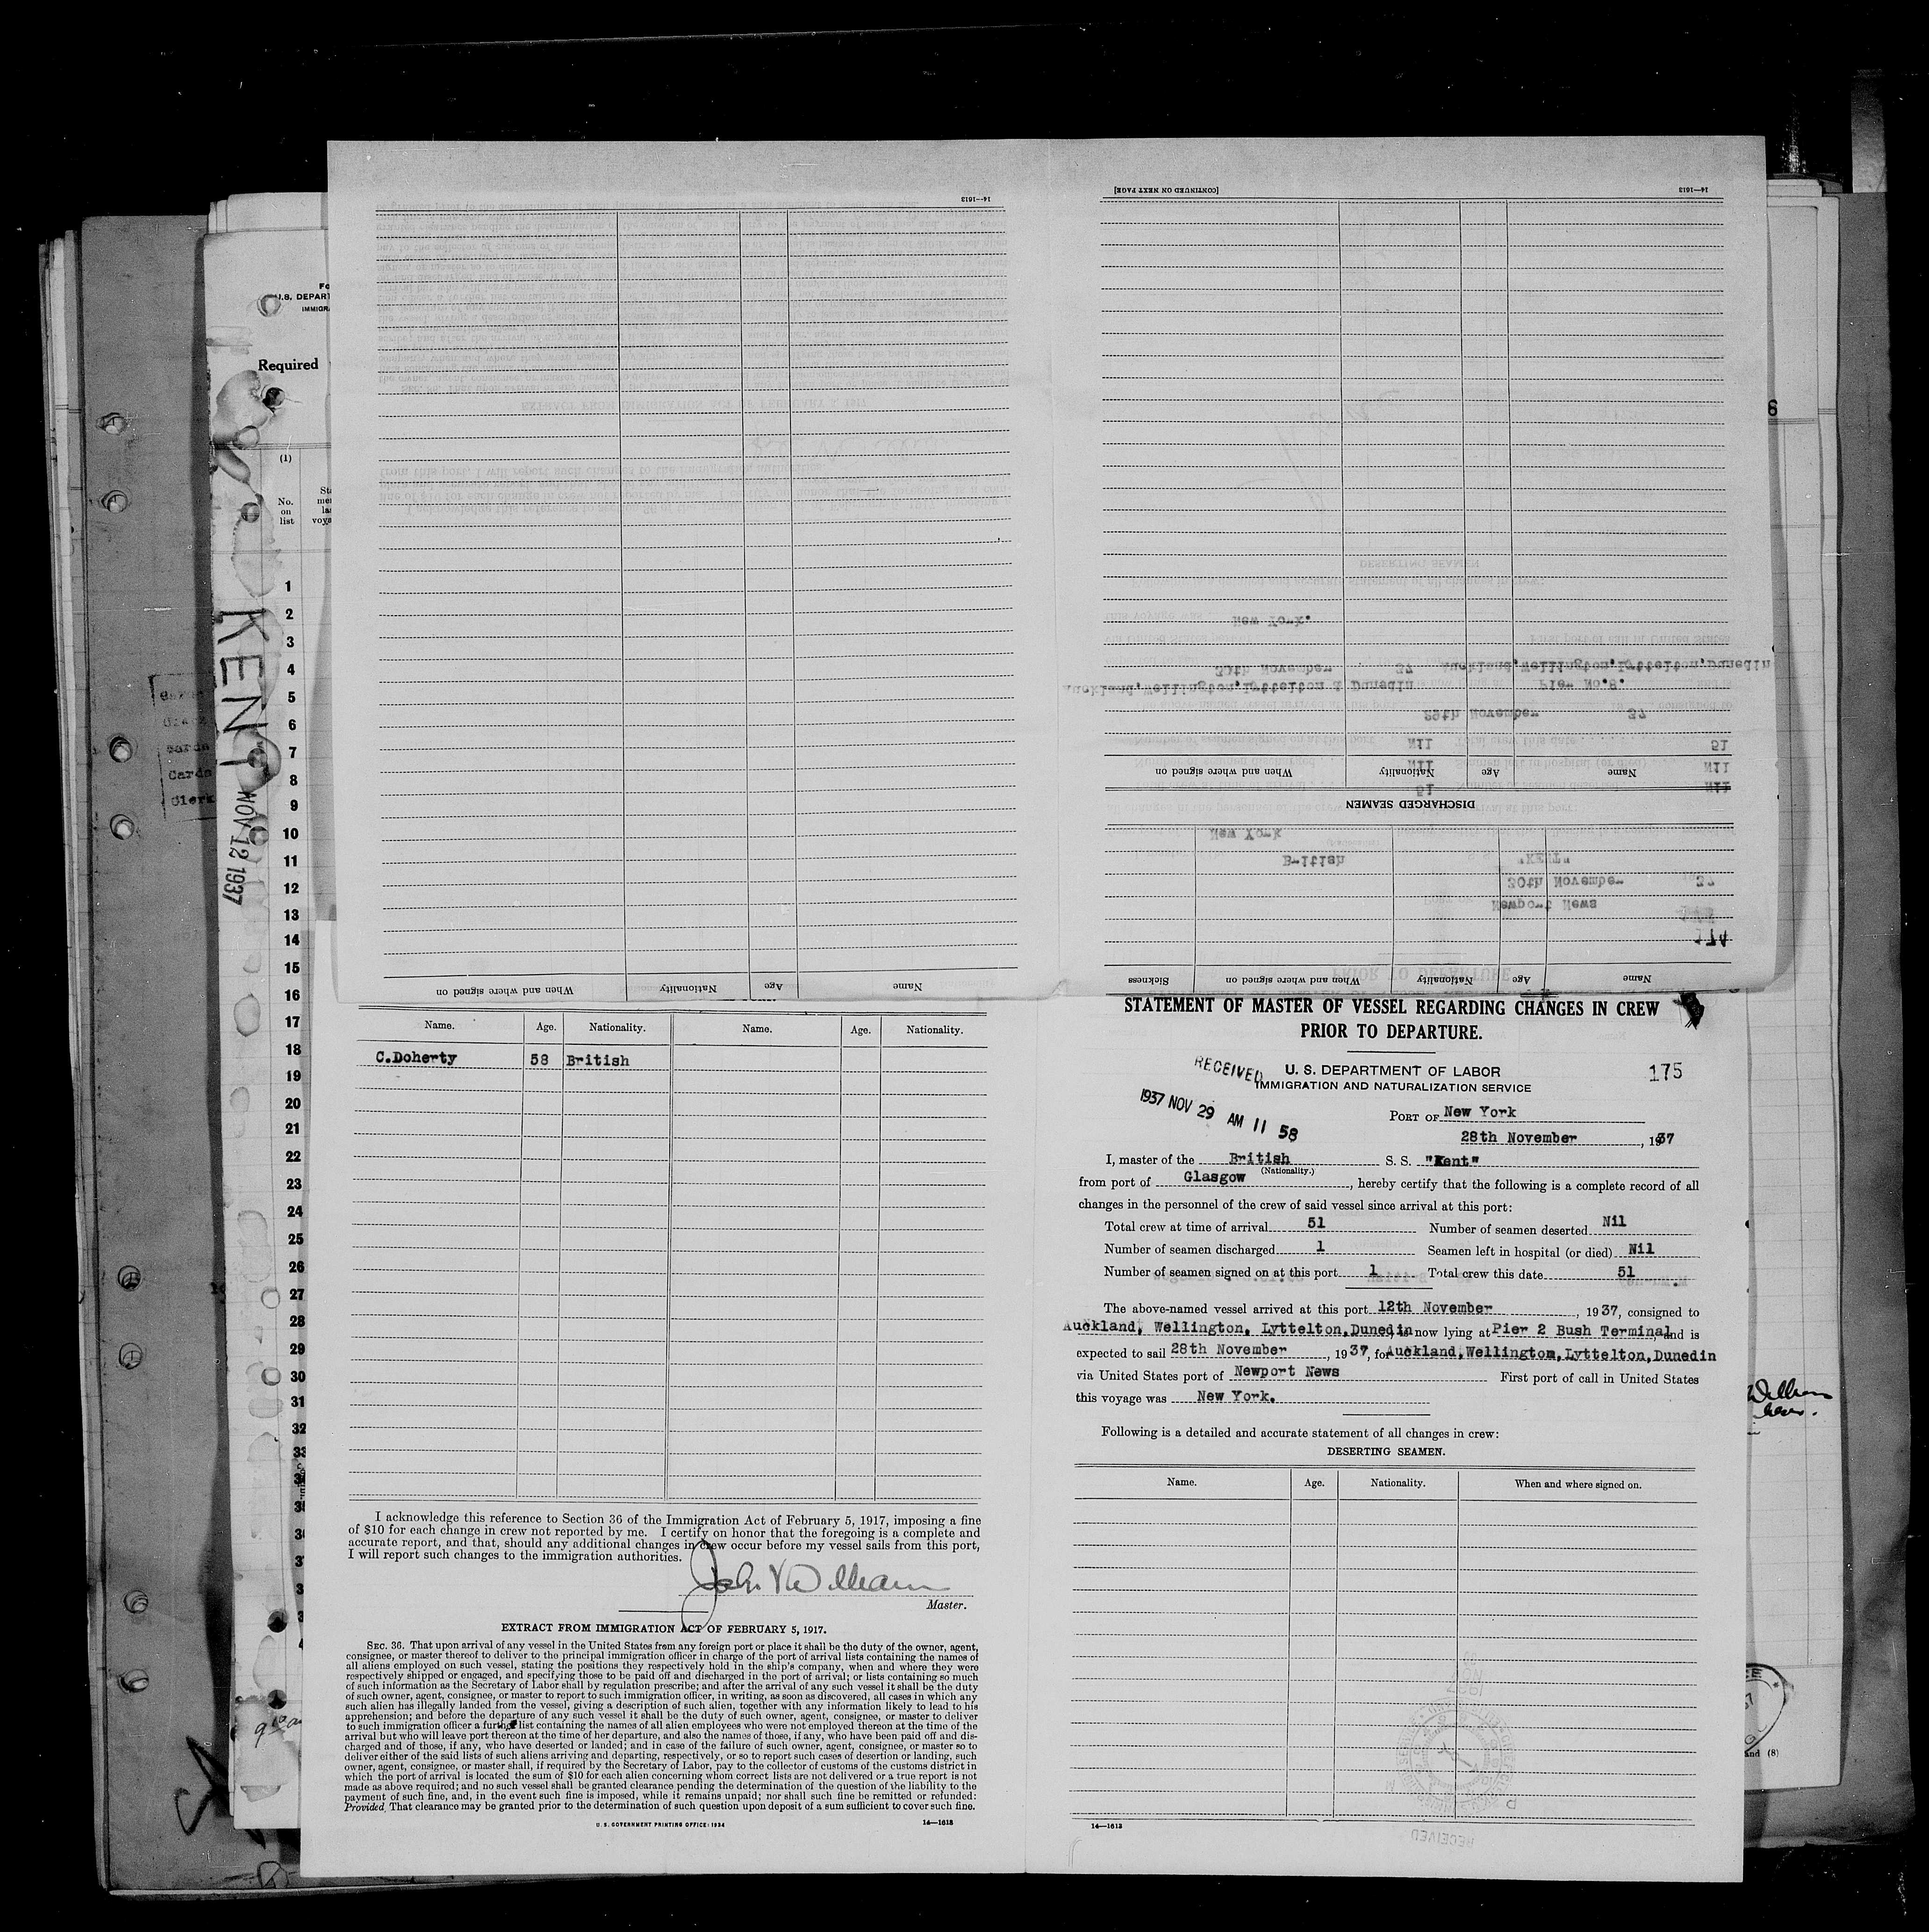 14—1613
[CONTINUED ON NEXT PAGE]
14—1613
Name
Age
Nationality
When and where signed on
DISCHARGED SEAMEN
Name
Age
Nationality
When and where signed on
Name
Age
Nationality
When and where signed on
Sickness
174
Newport News
30th November 37
British "KENT"
New York
51 Nil
Nil Nil
Nil 51
29th November 37
Auckland, Wellington, Lyttelton & Dunedin Pier No.8.
30th November 37 Auckland, Wellington, Lyttelton, Dunedin
New York.
U.S. DEPART
IMMIGR
Required
(1)
No.
on
list
1
2
3
4
5
6
7
8
9
10
11
12
13
14
15
16
17
18
19
20
21
22
23
24
25
26
27
28
29
30
31
32
KENT
NOV 12 1937
Cards
Clerk
Name. Age. Nationality. Name. Age. Nationality.
C.Doherty 58 British
I acknowledge this reference to Section 36 of the Immigration Act of February 5, 1917, imposing a fine
of $10 for each change in crew not reported by me. I certify on honor that the foregoing is a complete and
accurate report, and that, should any additional changes in crew occur before my vessel sails from this port,
I will report such changes to the immigration authorities.
Master.
EXTRACT FROM IMMIGRATION ACT OF FEBRUARY 5, 1917.
SEC. 36. That upon arrival of any vessel in the United States from any foreign port or place it shall be the duty of the owner, agent,
consignee, or master thereof to deliver to the principal immigration officer in charge of the port of arrival lists containing the names of
all aliens employed on such vessel, stating the positions they respectively hold in the ship's company, when and where they were
respectively shipped or engaged, and specifying those to be paid off and discharged in the port of arrival; or lists containing so much
of such information as the Secretary of Labor shall by regulation prescribe; and after the arrival of any such vessel it shall be the duty
of such owner, agent, consignee, or master to report to such immigration officer, in writing, as soon as discovered, all cases in which any
such alien has illegally landed from the vessel, giving a description of such alien, together with any information likely to lead to his
apprehension; and before the departure of any such vessel it shall be the duty of such owner, agent, consignee, or master to deliver
to such immigration officer a further list containing the names of all alien employees who were not employed thereon at the time of the
arrival but who will leave port thereon at the time of her departure, and also the names of those, if any, who have been paid off and dis-
charged and of those, if any, who have deserted or landed; and in case of the failure of such owner, agent, consignee, or master so to
deliver either of the said lists of such aliens arriving and departing, respectively, or so to report such cases of desertion or landing, such
owner, agent, consignee, or master shall, if required by the Secretary of Labor, pay to the collector of customs of the customs district in
which the port of arrival is located the sum of $10 for each alien concerning whom correct lists are not delivered or a true report is not
made as above required; and no such vessel shall be granted clearance pending the determination of the question of the liability to the
payment of such fine, and, in the event such fine is imposed, while it remains unpaid; nor shall such fine be remitted or refunded:
Provided, That clearance may be granted prior to the determination of such question upon deposit of a sum sufficient to cover such fine.
U. S. GOVERNMENT PRINTING OFFICE: 1934 14—1613
STATEMENT OF MASTER OF VESSEL REGARDING CHANGES IN CREW
PRIOR TO DEPARTURE.
RECEIVED
1937 NOV 29 AM 11 58
U. S. DEPARTMENT OF LABOR
IMMIGRATION AND NATURALIZATION SERVICE
175
PORT OF New York
28th November, 1937
I, master of the British S. S. "Kent"
(Nationality.)
from port of Glasgow, hereby certify that the following is a complete record of all
changes in the personnel of the crew of said vessel since arrival at this port:
Total crew at time of arrival 51 Number of seamen deserted Nil
Number of seamen discharged 1 Seamen left in hospital (or died) Nil
Number of seamen signed on at this port 1 Total crew this date 51
The above-named vessel arrived at this port 12th November, 1937, consigned to
Auckland, Wellington, Lyttelton, Dunedin now lying at Pier 2 Bush Terminal and is
expected to sail 28th November, 1937, for Auckland, Wellington, Lyttelton, Dunedin
via United States port of Newport News First port of call in United States
this voyage was New York.
Following is a detailed and accurate statement of all changes in crew:
DESERTING SEAMEN.
Name. Age. Nationality. When and where signed on.
14—1613
RECEIVED
and (8)